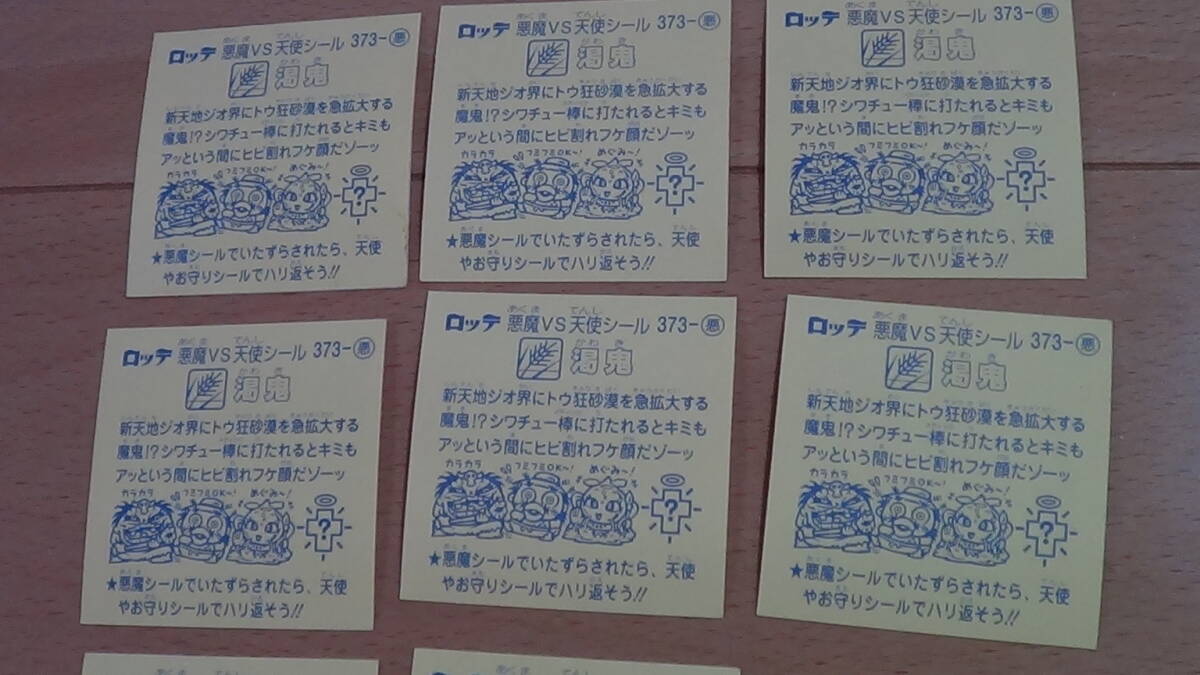 ロッテ 悪魔VS天使シール 373-悪
渇鬼
新天地ジオ界にトウ狂砂漠を急拡大する
魔鬼!?シワチュー棒に打たれるとキミも
アッという間にヒビ割れフケ顔だゾーッ
カラカラ フミフミOK〜! めぐみ〜!
?
★悪魔シールでいたずらされたら、天使
やお守りシールでハリ返そう!!
ロッテ 悪魔VS天使シール 373-悪
渇鬼
新天地ジオ界にトウ狂砂漠を急拡大する
魔鬼!?シワチュー棒に打たれるとキミも
アッという間にヒビ割れフケ顔だゾーッ
カラカラ フミフミOK〜! めぐみ〜!
?
★悪魔シールでいたずらされたら、天使
やお守りシールでハリ返そう!!
ロッテ 悪魔VS天使シール 373-悪
渇鬼
新天地ジオ界にトウ狂砂漠を急拡大する
魔鬼!?シワチュー棒に打たれるとキミも
アッという間にヒビ割れフケ顔だゾーッ
カラカラ フミフミOK〜! めぐみ〜!
?
★悪魔シールでいたずらされたら、天使
やお守りシールでハリ返そう!!
ロッテ 悪魔VS天使シール 373-悪
渇鬼
新天地ジオ界にトウ狂砂漠を急拡大する
魔鬼!?シワチュー棒に打たれるとキミも
アッという間にヒビ割れフケ顔だゾーッ
カラカラ フミフミOK〜! めぐみ〜!
?
★悪魔シールでいたずらされたら、天使
やお守りシールでハリ返そう!!
ロッテ 悪魔VS天使シール 373-悪
渇鬼
新天地ジオ界にトウ狂砂漠を急拡大する
魔鬼!?シワチュー棒に打たれるとキミも
アッという間にヒビ割れフケ顔だゾーッ
カラカラ フミフミOK〜! めぐみ〜!
?
★悪魔シールでいたずらされたら、天使
やお守りシールでハリ返そう!!
ロッテ 悪魔VS天使シール 373-悪
渇鬼
新天地ジオ界にトウ狂砂漠を急拡大する
魔鬼!?シワチュー棒に打たれるとキミも
アッという間にヒビ割れフケ顔だゾーッ
カラカラ フミフミOK〜! めぐみ〜!
?
★悪魔シールでいたずらされたら、天使
やお守りシールでハリ返そう!!